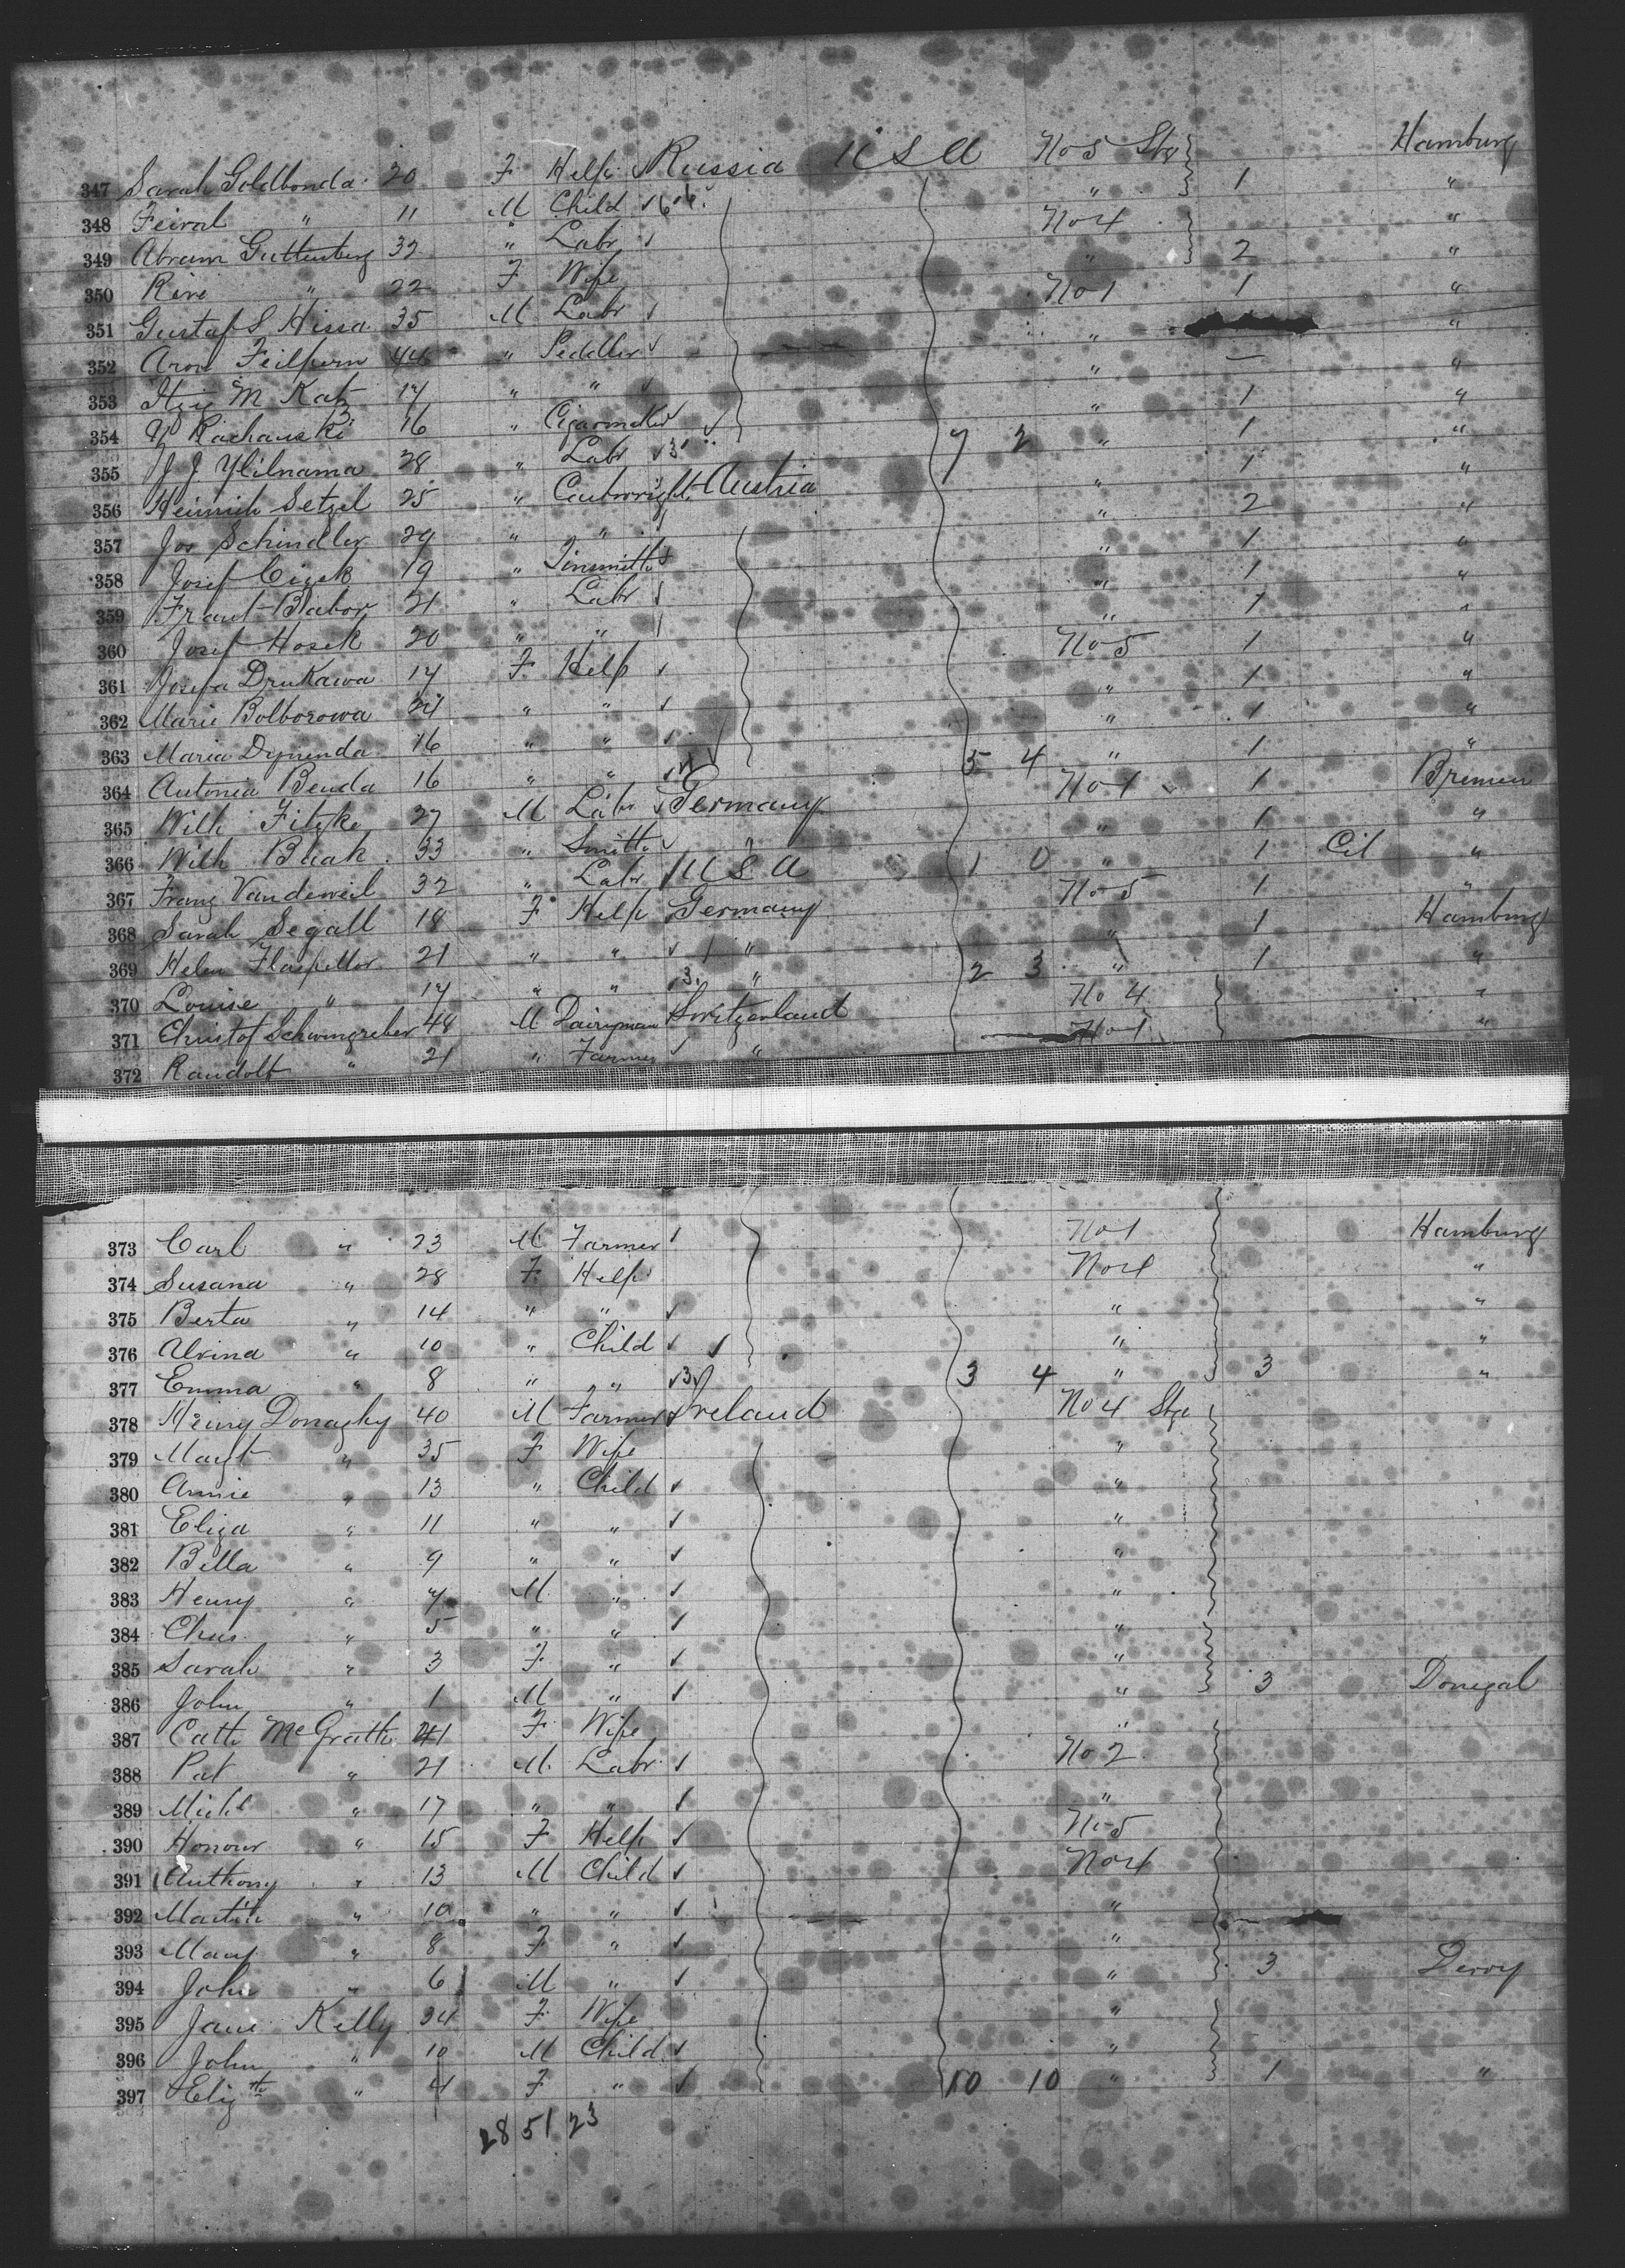 347 Sarah Goldbonda 20 F Help Russia U S A No 5 Stg 1 Hamburg
348 Feiral " 11 M Child " "
349 Abram Guttenberg 32 " Labr No 4 "
350 Rive " 22 F Wife " 2 "
351 Gustaf S Hissa 35 M Labr No 1 1 "
352 Aron Feilpern 44 " Pedller " "
353 Itzig M Katz 17 " " " — "
354 Rachauski 16 " Cigarmaker " 1 "
355 J. J. Ylilnama 28 " Labr 3 7 2 " 1 "
356 Heinrich Setzel 25 " Cartwright Austria " 1 "
357 Jos Schindler 29 " " " 2 "
358 Josef Cizek 19 " Tinsmith " 1 "
359 Frant Babor 21 " Labr " 1 "
360 Josef Hosek 20 " " " 1 "
361 Josefa Drukawa 17 F Help No 5 1 "
362 Marie Bolborowa 24 " " " 1 "
363 Maria Dynenda 16 " " " 1 "
364 Antonia Benda 16 " " 5 4 " 1 "
365 Wilh Fitzke 27 M Labr Germany No 1 1 Bremen
366 Wilh Baak 33 " Smith " 1 "
367 Franz Vandeweil 32 " Labr U S A 1 0 " 1 Cit "
368 Sarah Segall 18 F Help Germany No 5 1 "
369 Helen Flaspellor 21 " " " " 1 Hamburg
370 Louise " 17 " " 3 " 2 3 " 1 "
371 Christof Schwingreber 48 M Dairyman Switzerland No 4 "
372 Randolf " 21 " Farmer " No 1 "
373 Carl " 23 M Farmer No 1 Hamburg
374 Susana " 28 F Help No 4 "
375 Berta " 14 " " " "
376 Alvina " 10 " Child " "
377 Emma " 8 " " 3 3 4 " 3 "
378 Henry Donaghy 40 M Farmer Ireland No 4 Stge
379 Magt " 35 F Wife "
380 Annie " 13 " Child "
381 Eliza " 11 " " "
382 Bella " 9 " " "
383 Henry " 7 M " "
384 Chas " 5 " " "
385 Sarah " 3 F " "
386 John " 1 M " " 3 Donegal
387 Cath McGrath 41 F Wife "
388 Pat " 21 M Labr No 2
389 Michl " 17 " " "
390 Honour " 15 F Help No 5
391 Anthony " 13 M Child No 4
392 Martin " 10 " " "
393 Mary " 8 F " "
394 John " 6 M " " 3 Derry
395 Jane Kelly 34 F Wife "
396 John " 10 M Child "
397 Elizth " 4 F " 10 10 " 1 "
28 51 23